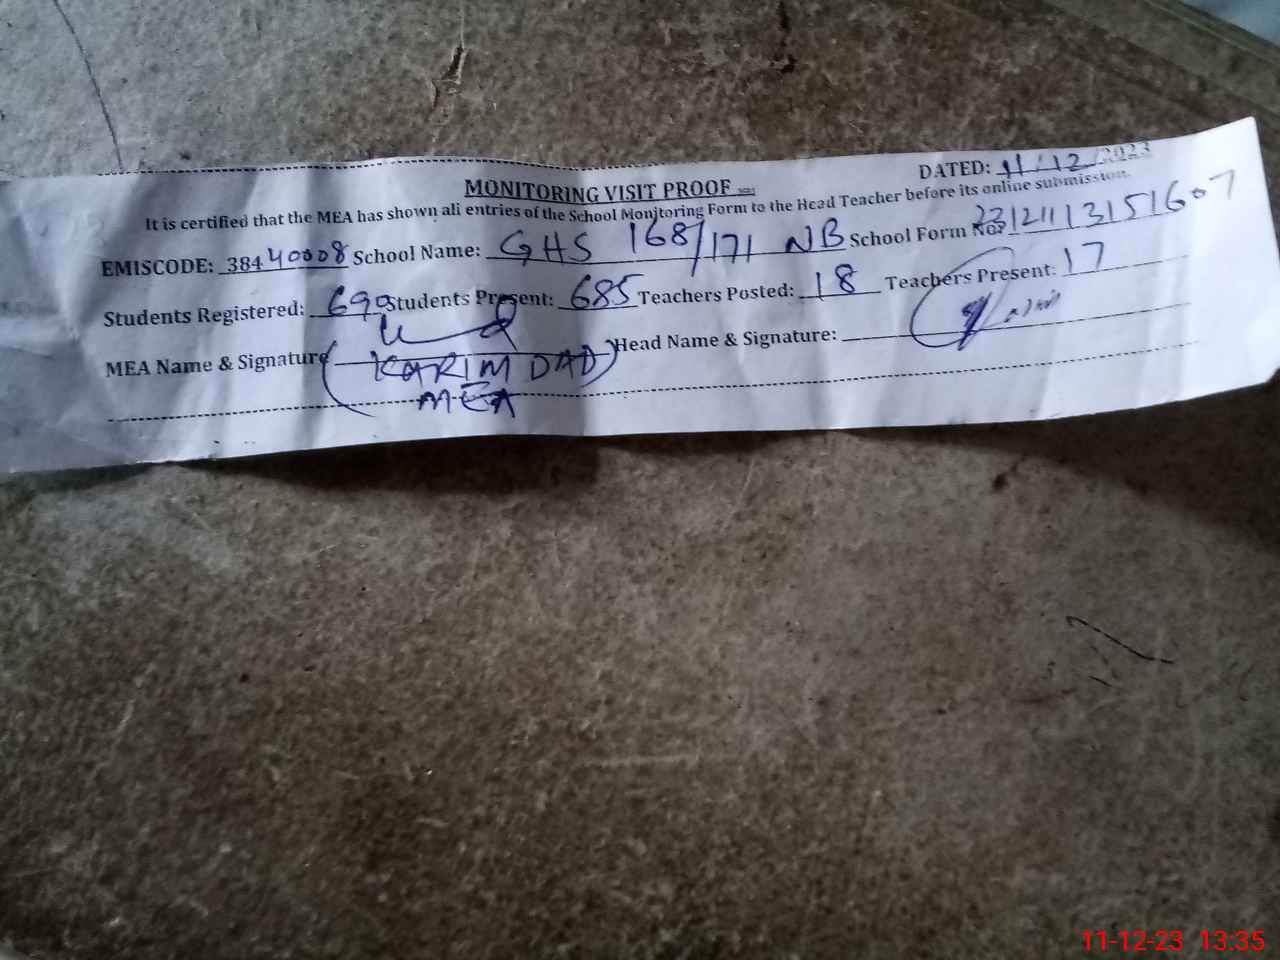 MONITORING VISIT PROOF
DATED: 11/12/2023
It is certified that the MEA has shown all entries of the School Monitoring Form to the Head Teacher before its online submission.
EMISCODE: 38440008 School Name: GHS 168/171 NB School Form No: 231211131151607
Students Registered: 699 Students Present: 685 Teachers Posted: 18 Teachers Present: 17
MEA Name & Signature Head Name & Signature:
(KARIM DAD)
MEA
11-12-23 13:35